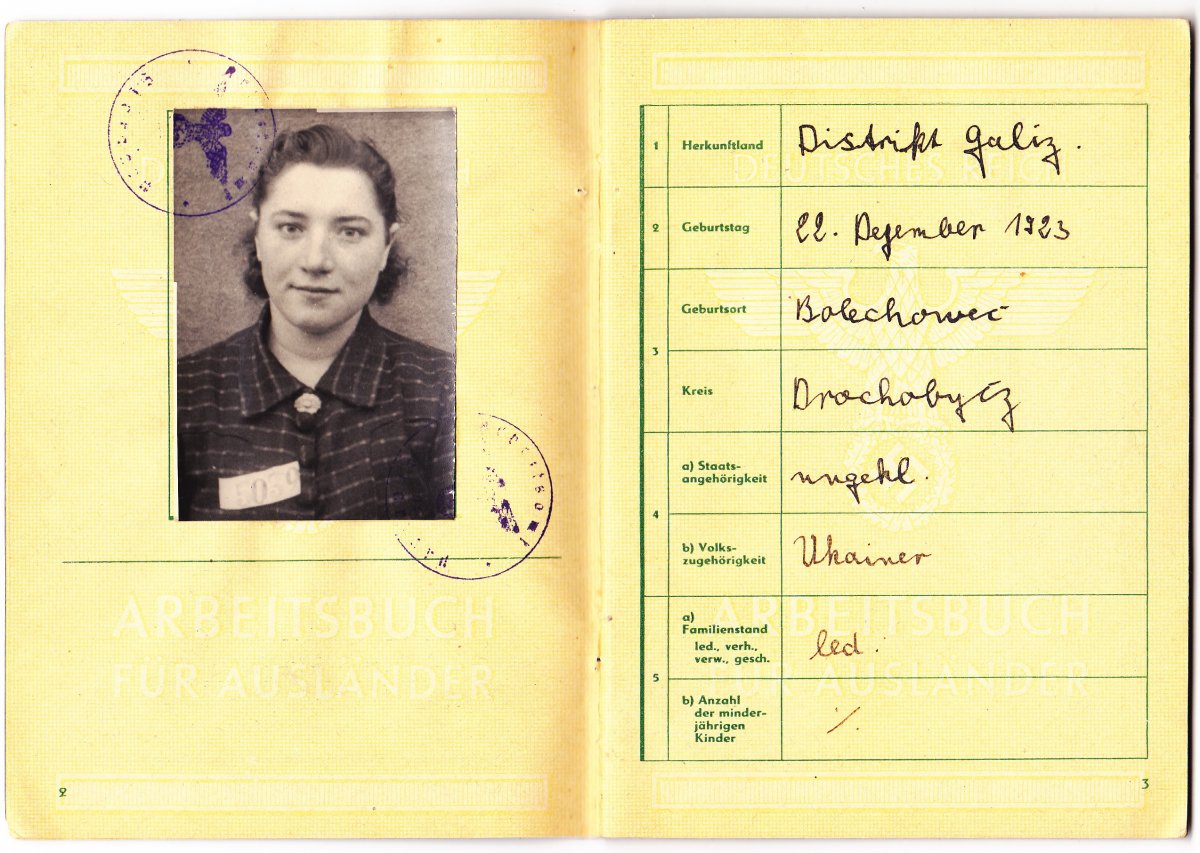 ARBEITSBUCH
FÜR AUSLÄNDER
2
DEUTSCHES REICH
1 Herkunftland Distrikt Galiz.
2 Geburtstag 22. Dezember 1923
3 Geburtsort Bolechowec
Kreis Drochobycz
4 a) Staats-
angehörigkeit ungekl.
b) Volks-
zugehörigkeit Ukainer
5 a)
Familienstand
led., verh.,
verw., gesch. led.
b) Anzahl
der minder-
jährigen
Kinder ·/.
ARBEITSBUCH
FÜR AUSLÄNDER
3